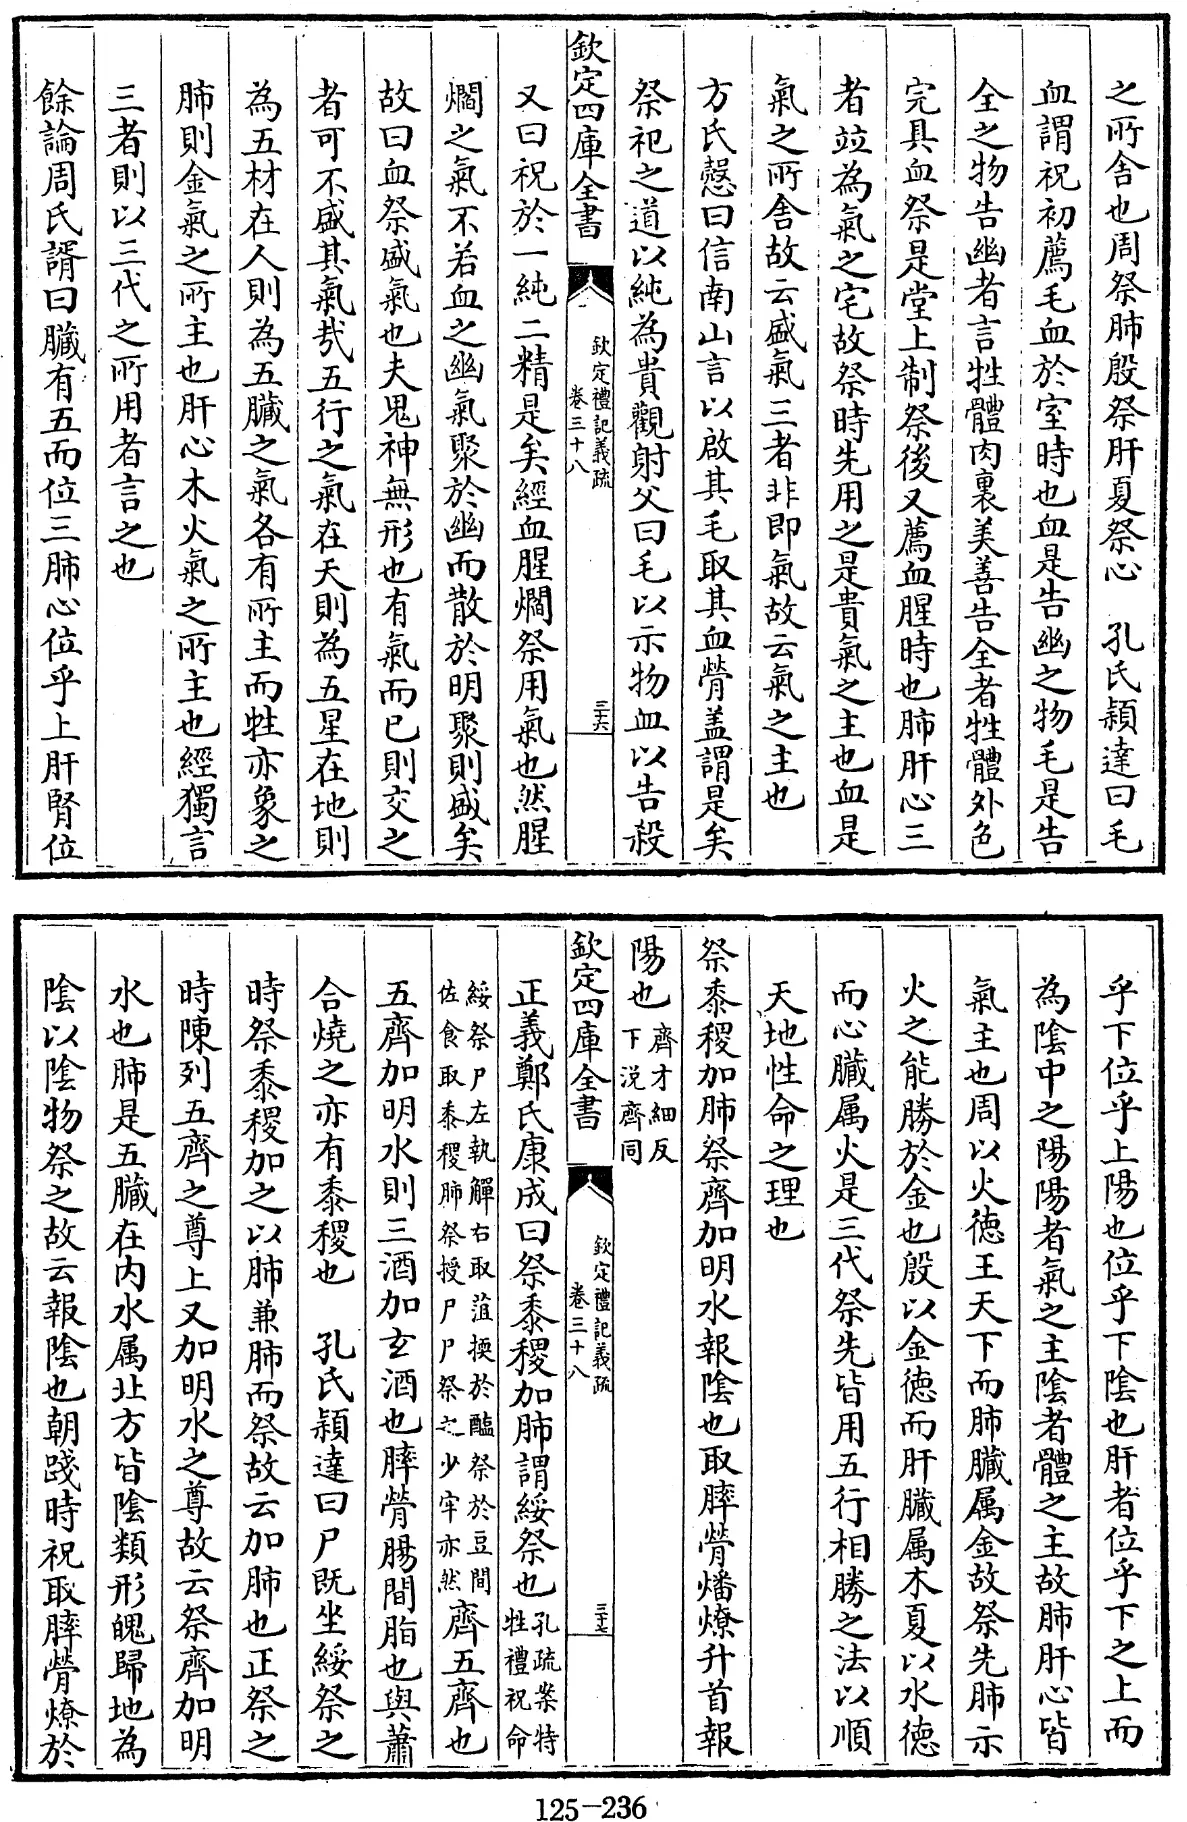 之所舎也周祭肺殷祭肝夏祭心　孔氏穎達曰毛
血謂祝初薦毛血於室時也血是告幽之物毛是告
全之物告幽者言牲體肉裏美善告全者牲體外色
完具血祭是堂上制祭後又薦血腥時也肺肝心三
者竝為氣之宅故祭時先用之是貴氣之主也血是
氣之所舎故云盛氣三者非即氣故云氣之主也
方氏慤曰信南山言以啟其毛取其血膋葢謂是矣
祭祀之道以純為貴觀射父曰毛以示物血以告殺
欽定四庫全書
欽定禮記義疏
卷三十八
三六
又曰祝於一純二精是矣經血腥爓祭用氣也然腥
爓之氣不若血之幽氣聚於幽而散於明聚則盛矣
故曰血祭盛氣也夫鬼神無形也有氣而已則交之
者可不盛其氣㢤五行之氣在天則為五星在地則
為五材在人則為五臟之氣各有所主而牲亦象之
肺則金氣之所主也肝心木火氣之所主也經獨言
三者則以三代之所用者言之也
餘論周氏諝曰臟有五而位三肺心位乎上肝腎位
乎下位乎上陽也位乎下陰也肝者位乎下之上而
為陰中之陽陽者氣之主陰者體之主故肺肝心皆
氣主也周以火徳王天下而肺臟属金故祭先肺示
火之能勝於金也殷以金徳而肝臟属木夏以水徳
而心臟属火是三代祭先皆用五行相勝之法以順
天地性命之理也
祭黍稷加肺祭齊加明水報陰也取膟膋燔燎升首報
陽也齊才細反
下説齊同
欽定四庫全書
欽定禮記義疏
卷三十八
三七
正義鄭氏康成曰祭黍稷加肺謂綏祭也孔疏案特
牲禮祝命
綏祭尸左執觶右取菹擩於醢祭於豆間
佐食取黍稷肺祭授尸尸祭之少牢亦然齊五齊也
五齊加明水則三酒加玄酒也膟膋腸間脂也與蕭
合燒之亦有黍稷也　孔氏穎達曰尸既坐綏祭之
時祭黍稷加之以肺兼肺而祭故云加肺也正祭之
時陳列五齊之尊上又加明水之尊故云祭齊加明
水也肺是五臟在内水属北方皆陰類形魄歸地為
陰以陰物祭之故云報陰也朝踐時祝取膟膋燎於
125-236